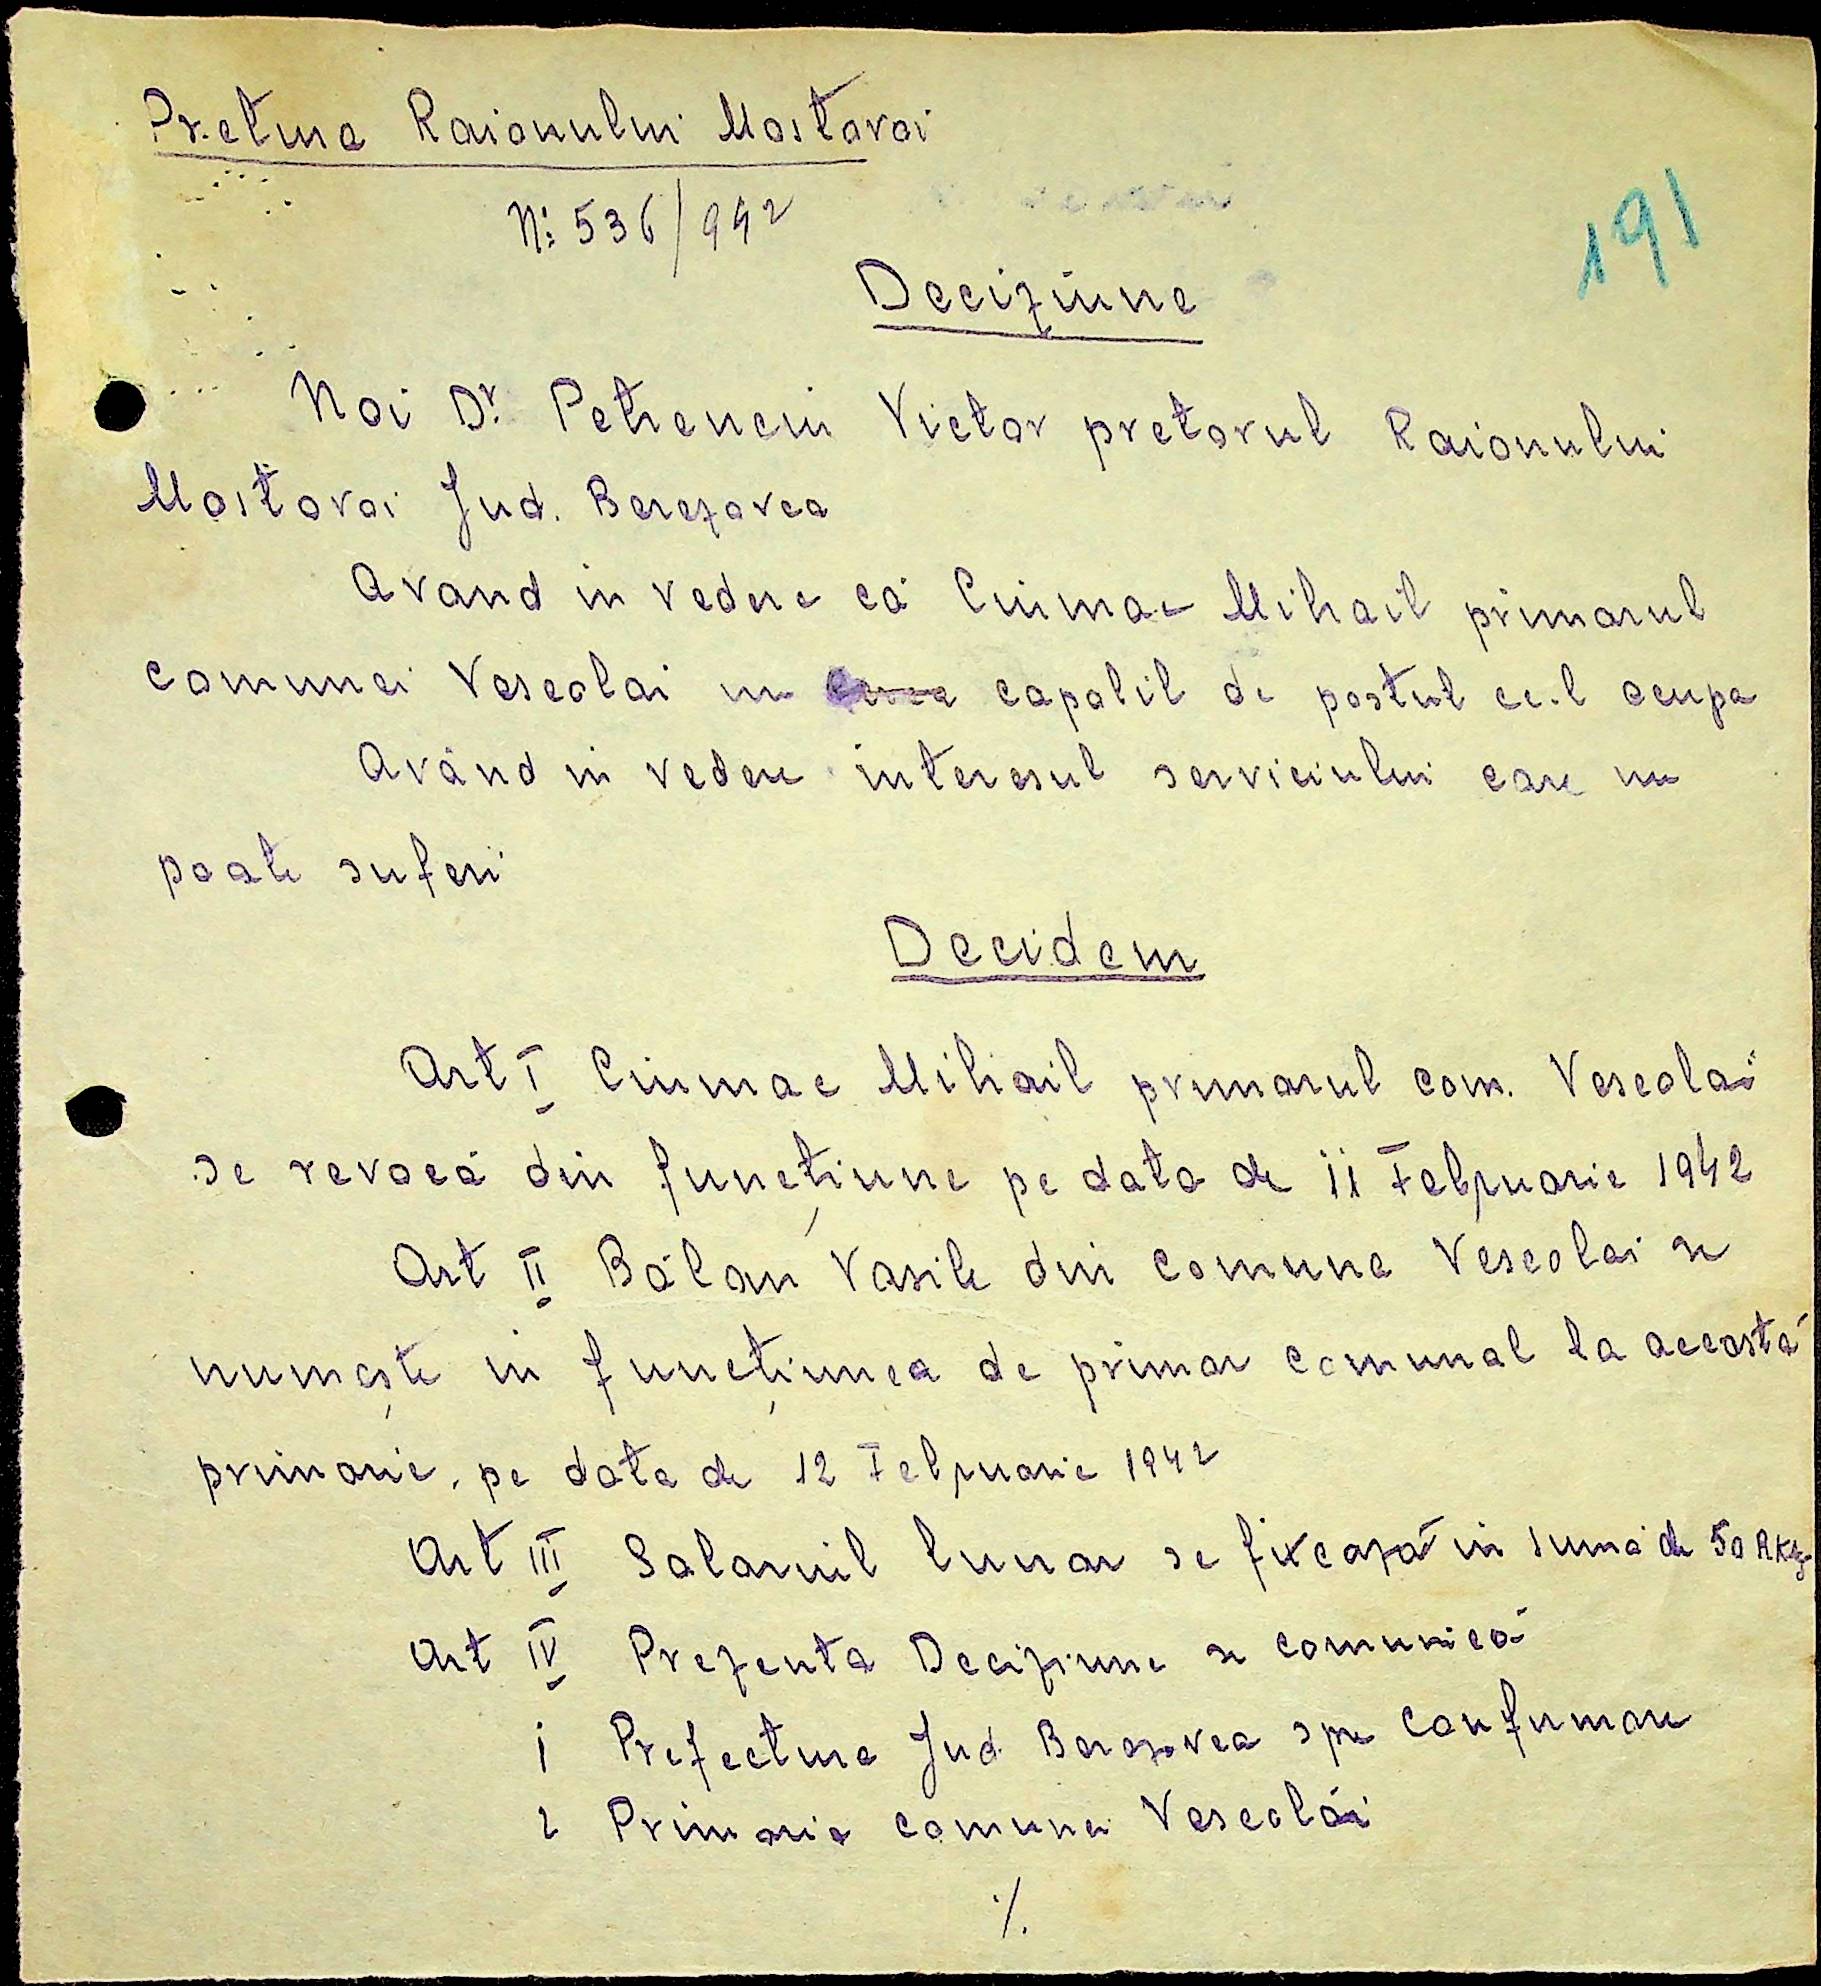 Pretura Raionului Mostovoi
Nr 536/942
191
Deciziune
Noi Dr. Petrenciu Victor pretorul Raionului
Mostovoi Jud. Berezovca
Avand in vedere că Ciumac Mihail primarul
comunei Veseolai nu capabil de postul ce-l ocupa
Având in vedere interesul serviciului care nu
poate suferi
Decidem
Art I Ciumac Mihail primarul com. Veseolai
se revocă din funcțiune pe data de 11 Februarie 1942
Art II Bălan Vasile din comuna Veseolai se
numește in funcțiunea de primar comunal la această
primarie, pe data de 12 Februarie 1942
Art III Salariul lunar se fixează in suma de 50
Art IV Prezenta Deciziune se comunică
1 Prefectura Jud Berezovca spre confirmare
2 Primaria comunei Veseolăi
./.